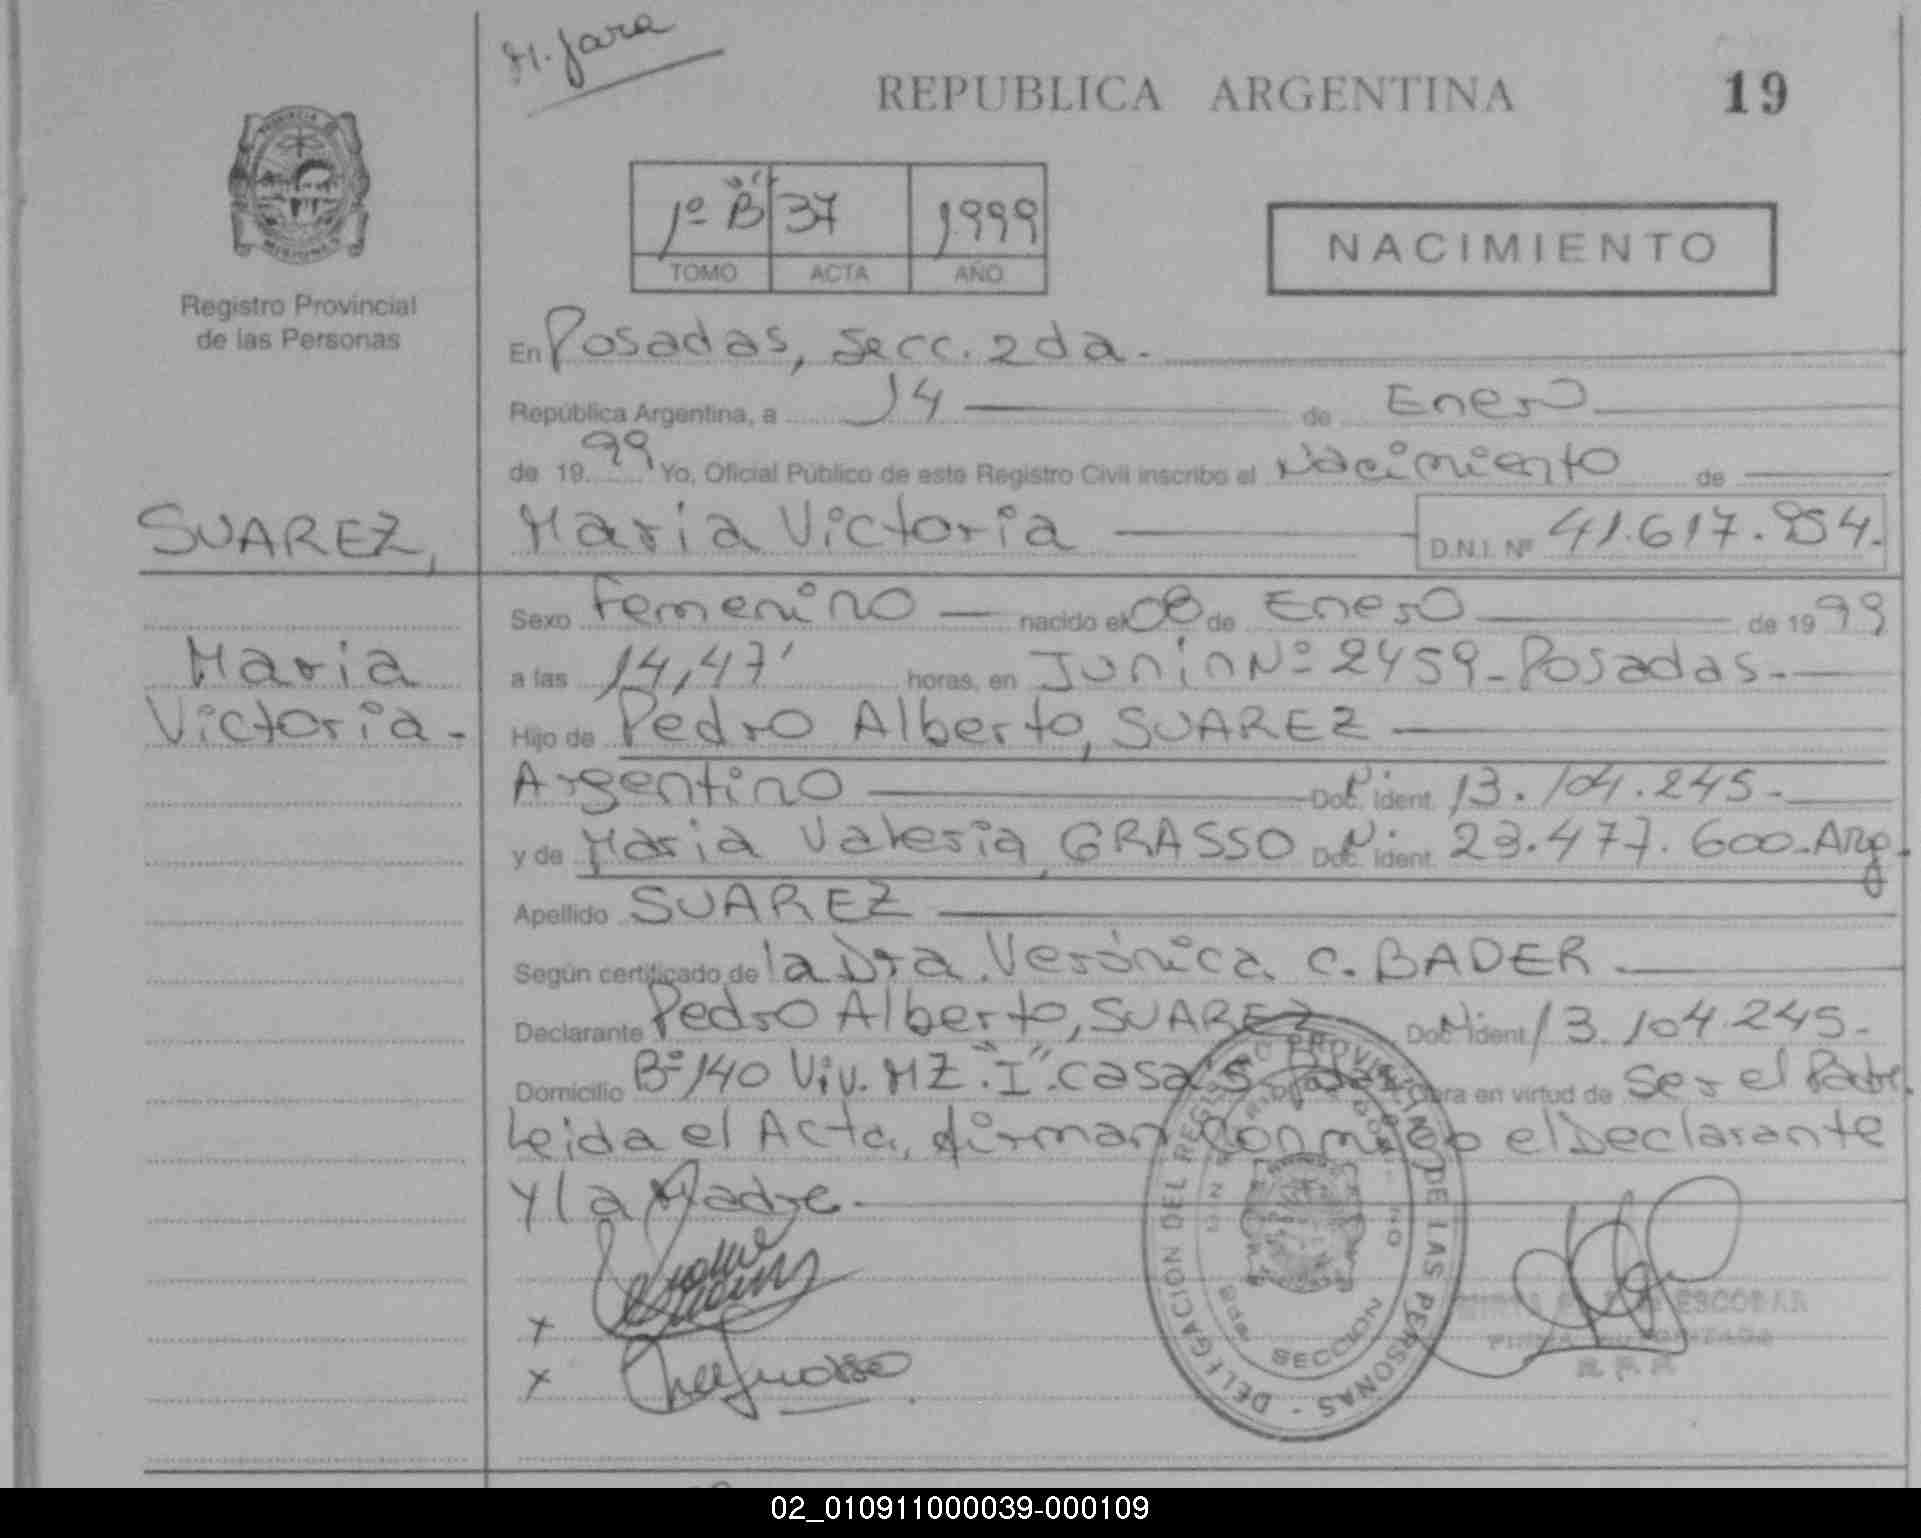 M. Jara
REPUBLICA ARGENTINA
19
1º "B" 37 1999
TOMO ACTA AÑO
NACIMIENTO
Registro Provincial
de las Personas
En Posadas, Secc. 2da.
República Argentina, a 14 de Enero
de 1999 Yo, Oficial Público de este Registro Civil inscribo el Nacimiento de
SUAREZ, Maria Victoria D.N.I. Nº 41.617.
Sexo Femenino nacido el 08 de Enero de 1999
Maria
Victoria.-
a las 14,47' horas, en Junin Nº 2459 - Posadas.-
Hijo de Pedro Alberto, SUAREZ
Argentino Doc. Ident. 13.104.245.-
y de Maria Valeria, GRASSO Doc. Ident. 23.477.600-Arg.
Apellido SUAREZ
Según certificado de la Dra. Verónica C. BADER.
Declarante Pedro Alberto, SUAREZ Doc. Ident. 13.104.245.-
Domicilio Bº 140 Viv. MZ. "I". casa 5 obra en virtud de Ser el Padre.
Leida el Acta, firman conmigo el Declarante
y la Madre.
x
x
DELEGACION DEL REGISTRO PROVINCIAL DE LAS PERSONAS -
SECCION
ESCOBAR
02_010911000039-000109